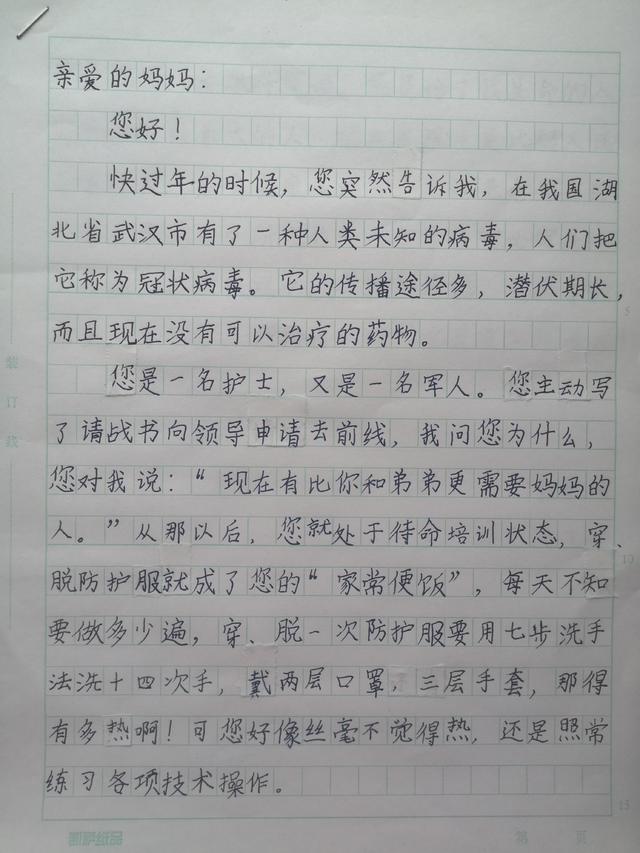 亲爱的妈妈：
您好！
快过年的时候，您突然告诉我，在我国湖
北省武汉市有了一种人类未知的病毒，人们把
它称为冠状病毒。它的传播途径多，潜伏期长，
而且现在没有可以治疗的药物。
您是一名护士，又是一名军人。您主动写
了请战书向领导申请去前线，我问您为什么，
您对我说：“现在有比你和弟弟更需要妈妈的
人。”从那以后，您就处于待命培训状态，穿、
脱防护服就成了您的“家常便饭”，每天不知
要做多少遍，穿、脱一次防护服要用七步洗手
法洗十四次手，戴两层口罩，三层手套，那得
有多热啊！可您好像丝毫不觉得热，还是照常
练习各项技术操作。
装订线
5
10
15
第 页